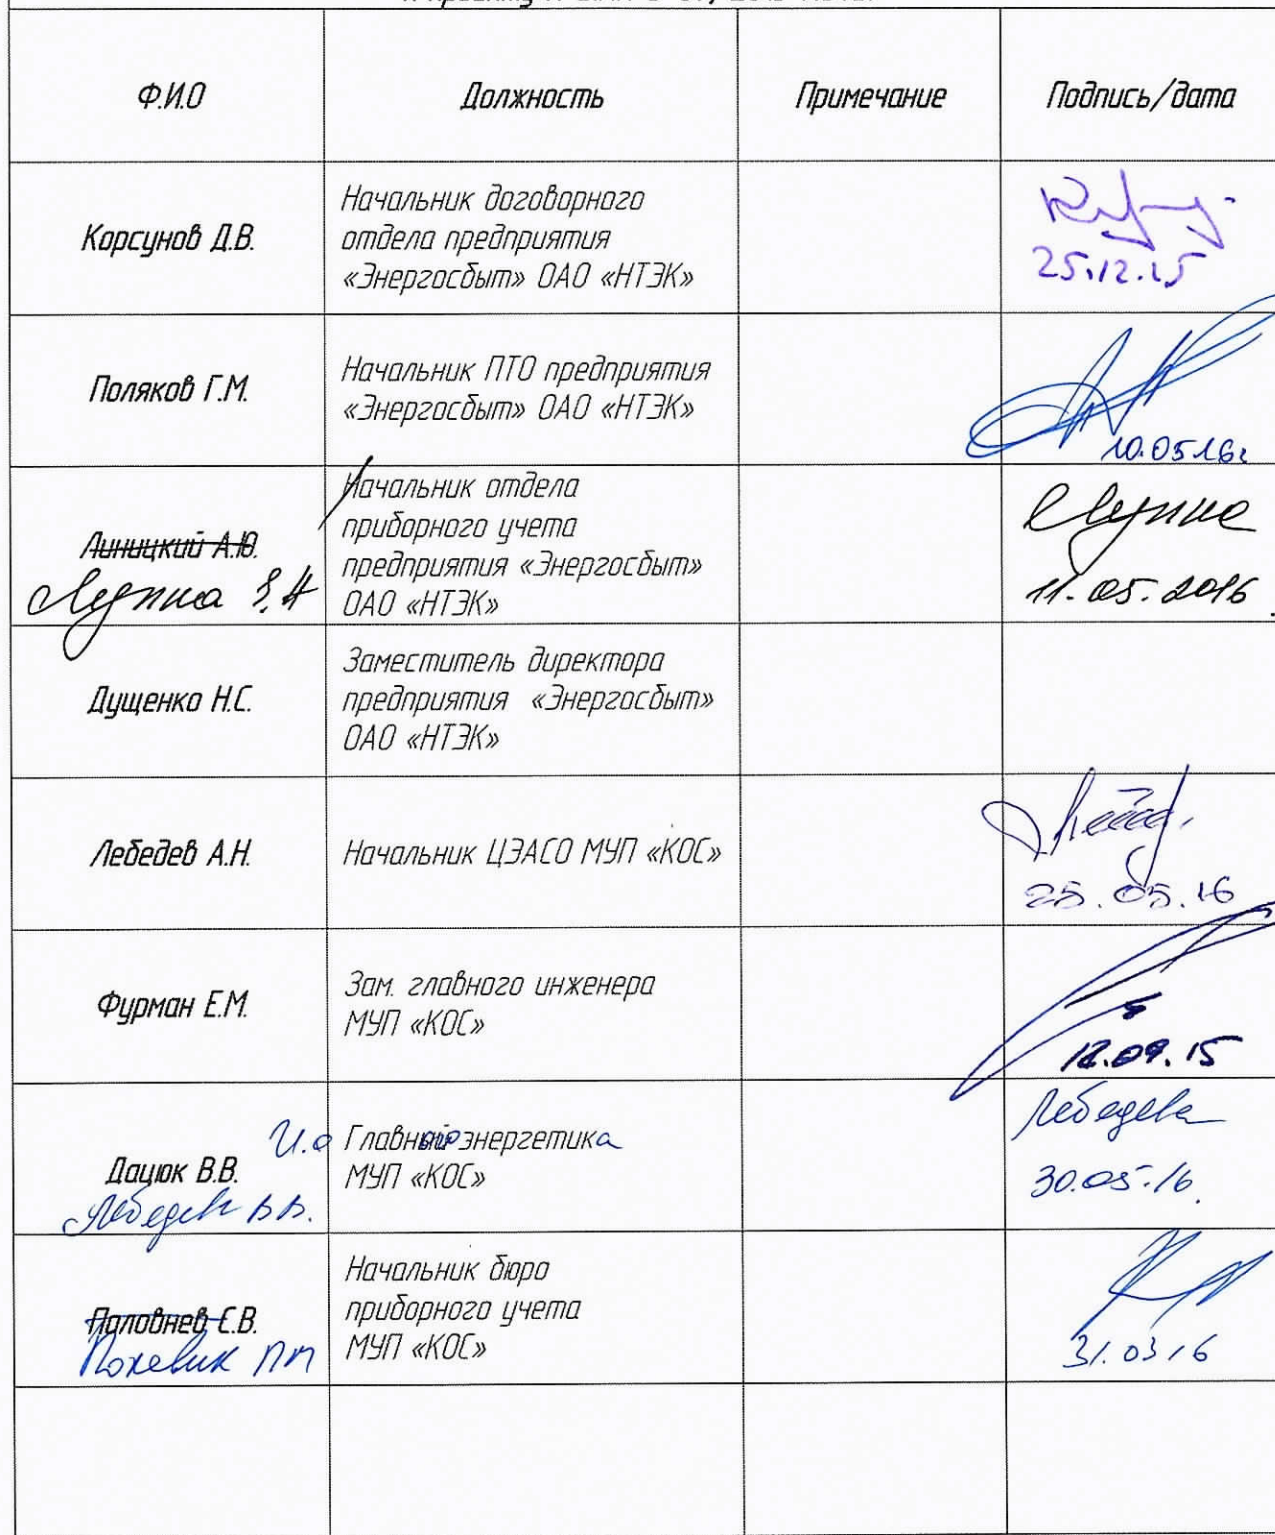 Ф.И.О
Должность
Примечание
Подпись/дата
Корсунов Д.В.
Начальник договорного
отдела предприятия
«Энергосбыт» ОАО «НТЭК»
25.12.15
Поляков Г.М.
Начальник ПТО предприятия
«Энергосбыт» ОАО «НТЭК»
10.05.16г
Линицкий А.Ю.
Начальник отдела
приборного учета
предприятия «Энергосбыт»
ОАО «НТЭК»
11.05.2016
Дущенко Н.С.
Заместитель директора
предприятия «Энергосбыт»
ОАО «НТЭК»
Лебедев А.Н.
Начальник ЦЭАСО МУП «КОС»
25.05.16
Фурман Е.М.
Зам. главного инженера
МУП «КОС»
12.09.15
Дацюк В.В.
И.о Главного энергетика
МУП «КОС»
Лебедева
30.05.16
Половнев Е.В.
Начальник бюро
приборного учета
МУП «КОС»
31.03.16